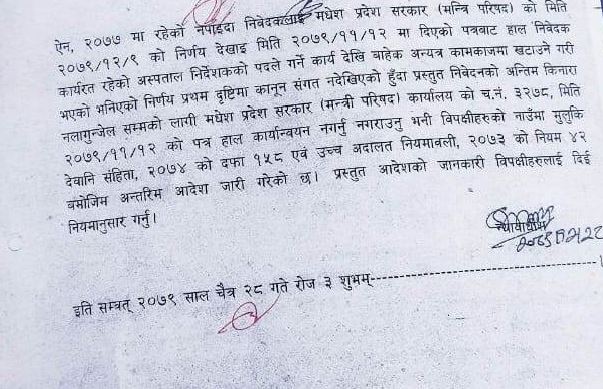 ऐन, २०७७ मा रहेको नपाईदा निवेदकलाई मधेश प्रदेश सरकार (मन्त्रि परिषद) को मिति
२०७९/१२/९ को निर्णय देखाइ मिति २०७९/११/१२ मा दिएको पत्रबाट हाल निवेदक
कार्यरत रहेको अस्पताल निर्देशकको पदले गर्ने कार्य देखि बाहेक अन्यत्र कामकाजमा खटाउने गरी
भएको भनिएको निर्णय प्रथम दृष्टिमा कानून संगत नदेखिएको हुँदा प्रस्तुत निवेदनको अन्तिम किनारा
नलागुन्जेल सम्मको लागी मधेश प्रदेश सरकार (मन्त्री परिषद) कार्यालय को च.नं. ३२७८, मिति
२०७९/११/१२ को पत्र हाल कार्यान्वयन नगर्नु नगराउनु भनी विपक्षीहरुको नाउँमा मुलुकि
देवानि संहिता, २०७४ को दफा १५८ एवं उच्च अदालत नियमावली, २०७३ को नियम ४२
बमोजिम अन्तरिम आदेश जारी गरेको छ। प्रस्तुत आदेशको जानकारी विपक्षीहरुलाई दिई
नियमानुसार गर्नु।
न्यायाधीश
इति सम्वत् २०७९ साल चैत्र २८ गते रोज ३ शुभम्-----------------------------------